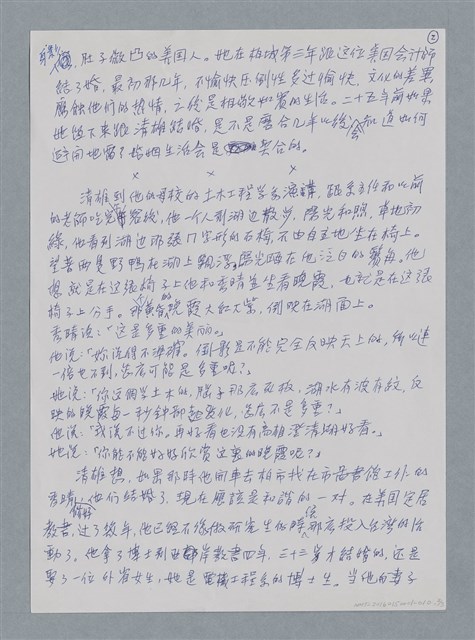 ③
肚子微凸的美國人。她在柏城第三年跟這位美國会計師
結了婚，最初那几年，不愉快压倒性多过愉快，文化的差異
磨蝕他們的热情，之後是相敬如賓的生活。二十五年前如果
她留下來跟清雄結婚，是不是磨合几年以後会知道如何
避開地雷？婚姻生活会是契合的。
× × ×
清雄到他的母校的土木工程学系演講，跟系主任和以前
的老師吃完飯後，他一个人到湖边散步，陽光和照，草地初
綠，他看到湖边那張ㄇ字形的石椅，不由自主地坐在椅上。
望着兩隻野鴨在湖上飄浮，陽光晒在他泛白的鬢角。他
想就是在这張椅子上他和秀晴並坐看晚霞，也就是在这張
椅子上分手。那黃昏的晚霞大紅大紫，倒映在湖面上。
秀晴说：「这是多重的美丽。」
他说：「妳说得不準確。倒影是不能完全反映天上的，所以連
一倍也不到，怎麼可能是多重呢？」
她说：「你这個学土木的，腦子那麼死板，湖水有波有紋，反
映的晚霞每一秒钟都起变化，怎麼不是多重？」
他说：「我说不过你。再好看也没有高雄澄清湖好看。」
她说：「你能不能好好欣赏这裏的晚霞呢？」
清雄想，如果那時他開車去柏市找在市品書館工作的
秀晴，他們結婚了，現在應該是和諧的一对。在美国定居
教書，过了幾年，他已經不像做研究生時候那麼投入台湾的活
動了。他拿了博士到西岸教書四年，三十三岁才結婚的，还是
娶了一位外省女生，她是電機工程系的博士生。当他的妻子